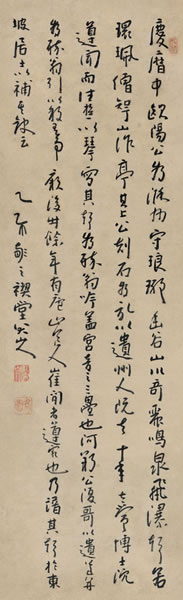 慶曆中歐陽公為滁州守琅琊幽谷山川奇麗鳴泉飛瀑聲若
環珮僧智仙作亭其上公刻石為記以遺州人既去十年太常博士沈
遵聞而往遊以琴寫其聲為醉翁吟蓋宮聲三疊也河朔公復歌以遺遵并
為醉翁引以敘其事顧後卅餘年有廬山道人崔閑者遵客也乃譜其聲於東
坡居士以補其缺云 乙亥 之禊堂